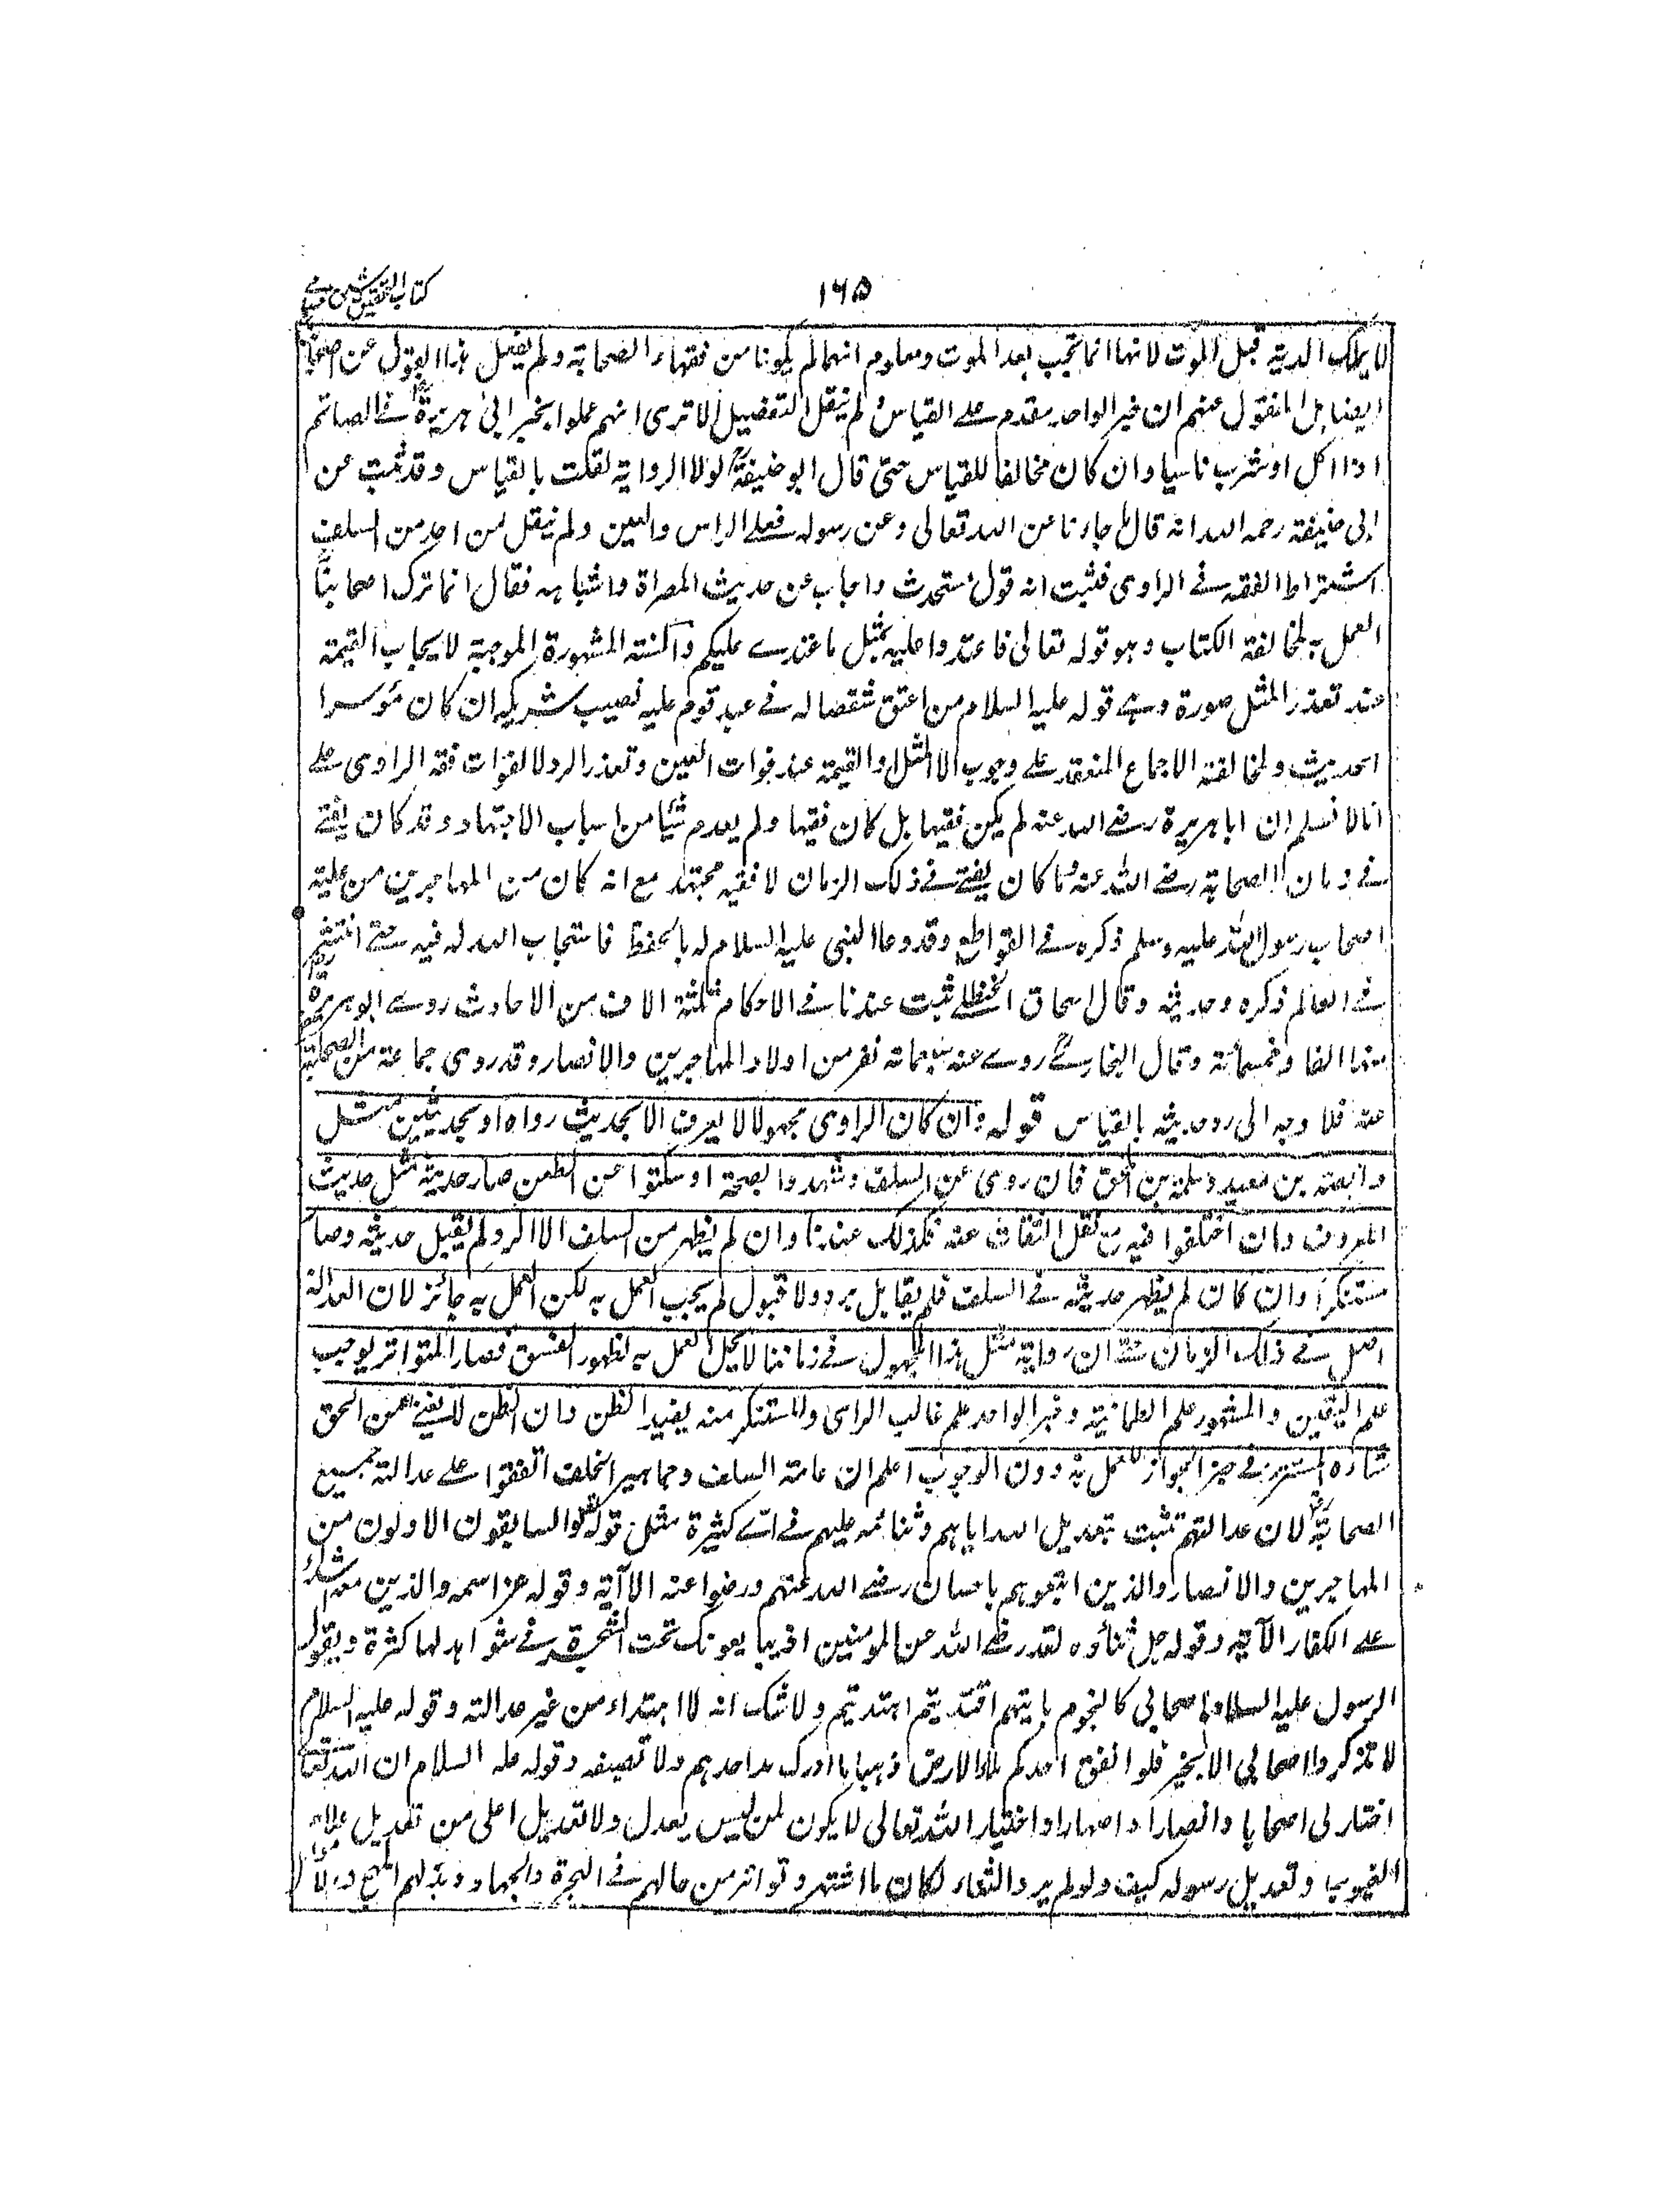 ١٦٥
كتاب التحقيق شرح حسامي
لا يملك الدية قبل الموت لانها انما تجب بعد الموت ومعلوم انهما لم يكونا من فقهاء الصحابة ولم ينقل هذا القول عن اصحابنا
ايضا بل المنقول عنهم ان خبر الواحد مقدم على القياس ولم ينقل التفصيل الا ترى انهم عملوا بخبر ابي هريرة في الصائم
اذا اكل او شرب ناسيا وان كان مخالفا للقياس حتى قال ابو حنيفة لولا الرواية لقلت بالقياس وقد ثبت عن
ابي حنيفة رحمه الله انه قال ما جاءنا عن الله تعالى وعن رسوله فعلى الراس والعين ولم ينقل عن احد من السلف
اشتراط الفقه في الراوي فثبت انه قول مستحدث واجاب عن حديث المصراة واشباهه فقال انما ترك اصحابنا
العمل به لمخالفة الكتاب وهو قوله تعالى فاعتدوا عليه بمثل ما اعتدى عليكم والسنة المشهورة الموجبة لايجاب القيمة
عند تعذر المثل صورة وهي قوله عليه السلام من اعتق شقصا له في عبد قوم عليه نصيب شريكه ان كان موسرا
الحديث ولمخالفة الاجماع المنعقد على وجوب المثل او القيمة عند فوات العين وتعذر الرد لا لفوات فقه الراوي على
انا لا نسلم ان ابا هريرة رضي الله عنه لم يكن فقيها بل كان فقيها ولم يعدم شيئا من اسباب الاجتهاد وقد كان يفتي
في زمان الصحابة رضي الله عنهم وما كان يفتي في ذلك الزمان الا فقيه مجتهد مع انه كان من المهاجرين من علية
اصحاب رسول الله عليه وسلم ذكره في القواطع وقد دعا النبي عليه السلام له بالحفظ فاستجاب الله له فيه حتى انتشر
في العالم ذكره وحديثه وقال اسحاق الحنظلي ثبت عندنا في الاحكام ثلثة الاف من الاحاديث روى ابو هريرة
منها الفا وخمسمائة وقال البخاري روى عنه سبعمائة نفر من اولاد المهاجرين والانصار وقد روى جماعة من الصحابة
عنه فلا وجه الى رد حديثه بالقياس قوله وان كان الراوي مجهولا لا يعرف الا بحديث رواه او بحديثين مثل
وابصة بن معبد وسلمة بن المحبق فان روى عنه السلف وشهدوا بصحته او سكتوا عن الطعن صار حديثه مثل حديث
المعروف وان اختلفوا فيه مع نقل الثقات عنه فكذلك عندنا وان لم يظهر من السلف الا الرد لم يقبل حديثه وصار
مستنكرا وان كان لم يظهر حديثه في السلف فلم يقابل برد ولا قبول لم يجب العمل به لكن العمل به جائز لان العدالة
اصل في ذلك الزمان حتى ان رواية مثل هذا المجهول في زماننا لا يحل العمل به لظهور الفسق فصار المتواتر يوجب
علم اليقين والمشهور علم الطمانينة وخبر الواحد علم غالب الراى والمستنكر منه يفيد الظن وان الظن لا يغني من الحق
شيئا والمستتر في حيز الجواز للعمل به دون الوجوب اعلم ان عامة السلف وجماهير الخلف اتفقوا على عدالة جميع
الصحابة لان عدالتهم تثبت بتعديل الله اياهم وثنائه عليهم في آى كثيرة مثل قوله تعالى والسابقون الاولون من
المهاجرين والانصار والذين اتبعوهم باحسان رضي الله عنهم ورضوا عنه الآية وقوله عز اسمه والذين معه اشداء
على الكفار الآية وقوله جل ثناؤه لقد رضي الله عن المؤمنين اذ يبايعونك تحت الشجرة في شواهد لها كثرة وبقول
الرسول عليه السلام اصحابي كالنجوم بايهم اقتديتم اهتديتم ولا شك انه لا اهتداء من غير عدالة وقوله عليه السلام
لا تذكروا اصحابي الا بخير فلو انفق احدكم ملاء الارض ذهبا ما ادرك مد احدهم ولا نصيفه وقوله عليه السلام ان الله تعالى
اختار لي اصحابا وانصارا واصهارا واختيار الله تعالى لا يكون لمن ليس بعدل ولا تعديل اعلى من تعديل علام
الغيوب وتعديل رسوله كيف ولو لم يرد الثناء لكان ما اشتهر وتواتر من حالهم في الهجرة والجهاد وبذلهم المهج والاموال